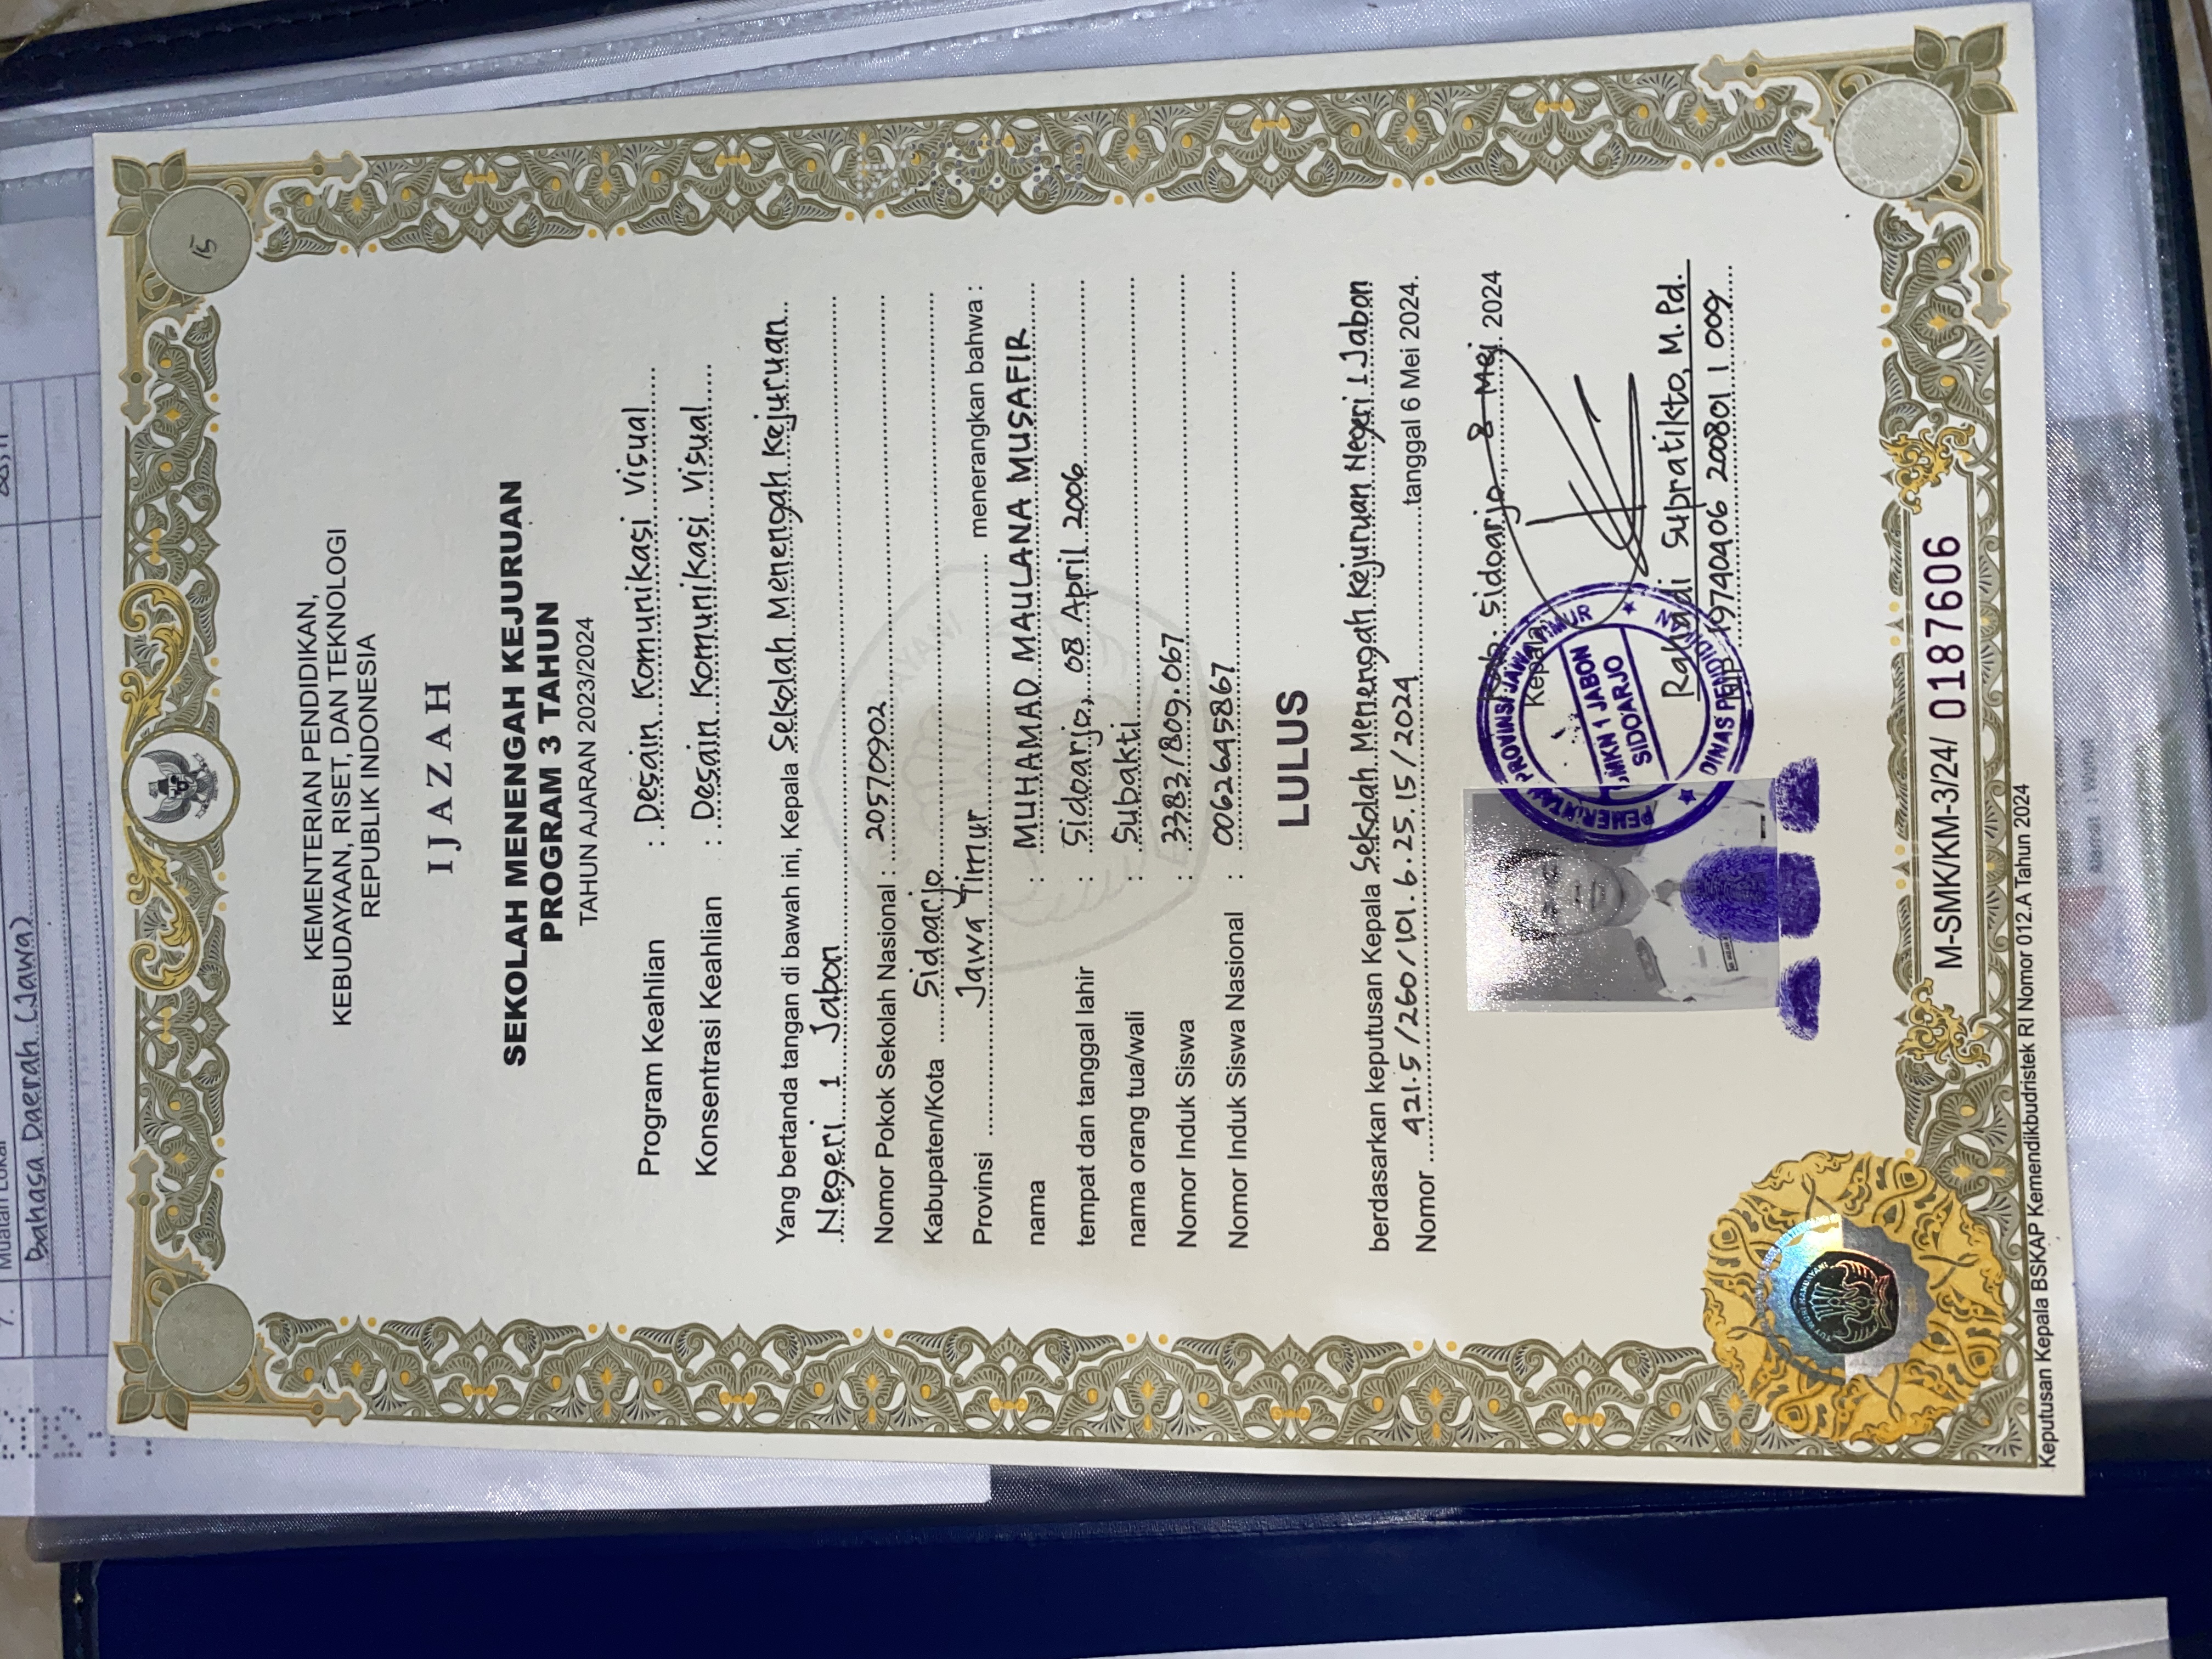 7. Muatan Lokal
Bahasa Daerah (Jawa)
15
KEMENTERIAN PENDIDIKAN,
KEBUDAYAAN, RISET, DAN TEKNOLOGI
REPUBLIK INDONESIA
IJAZAH
SEKOLAH MENENGAH KEJURUAN
PROGRAM 3 TAHUN
TAHUN AJARAN 2023/2024
Program Keahlian : Desain Komunikasi Visual
Konsentrasi Keahlian : Desain Komunikasi Visual
Yang bertanda tangan di bawah ini, Kepala Sekolah Menengah Kejuruan
Negeri 1 Jabon
Nomor Pokok Sekolah Nasional : 20570902
Kabupaten/Kota Sidoarjo
Provinsi Jawa Timur menerangkan bahwa :
nama : MUHAMAD MAULANA MUSAFIR
tempat dan tanggal lahir : Sidoarjo, 08 April 2006
nama orang tua/wali : Subakti
Nomor Induk Siswa : 3383/809.067
Nomor Induk Siswa Nasional : 0062645867
LULUS
berdasarkan keputusan Kepala Sekolah Menengah Kejuruan Negeri 1 Jabon
Nomor 421.5/260/101.6.25.15/2024 tanggal 6 Mei 2024.
Kab. Sidoarjo, 8 Mei 2024
Kepala
PEMERINTAH PROVINSI JAWA TIMUR
SMKN 1 JABON
SIDOARJO
DINAS PENDIDIKAN
Rahadi Supratikto, M.Pd.
NIP 19740406 200801 1 009
TUT WURI HANDAYANI
M-SMK/KM-3/24/ 0187606
Keputusan Kepala BSKAP Kemendikbudristek RI Nomor 012.A Tahun 2024
Alamat : Wunut